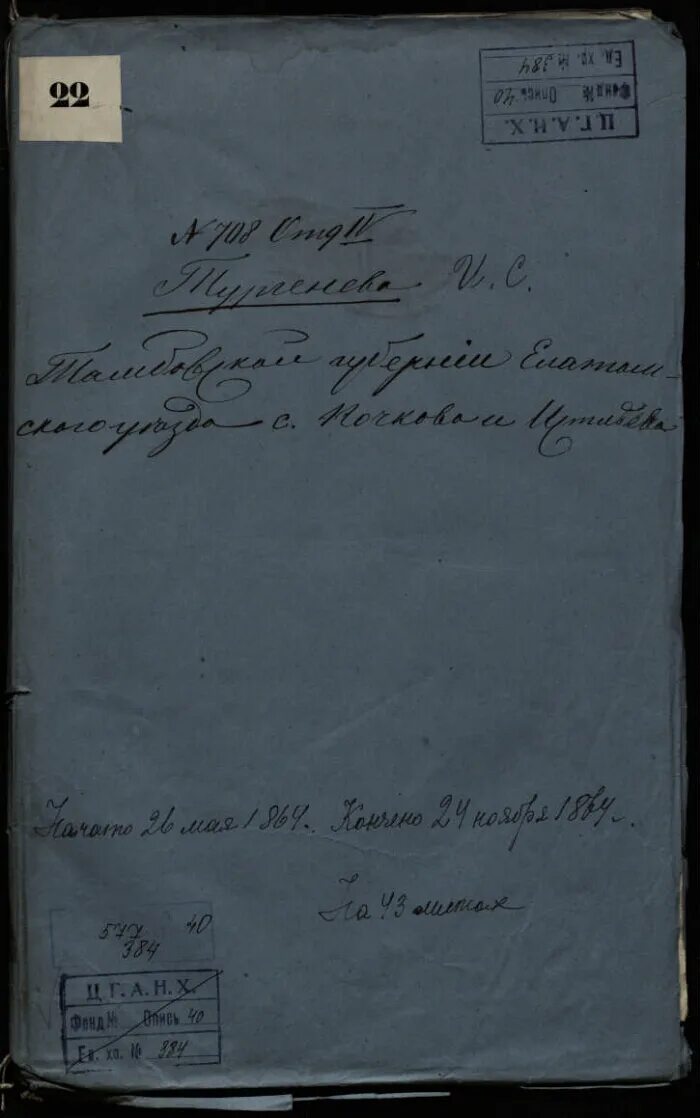 22
Ц.Г.А.Н.Х.
Фонд № Опись 40
Ед. хр. № 384
N 708 Отд IV
Тургенева И. С.
Тамбовской губерніи Елатом-
скаго уѣзда с. Кочкова и
Начато 26 мая 1864 г. Кончено 24 ноября 1864 г.
На 43 листах
577 40
384
Ц.Г.А.Н.Х.
Фонд № Опись 40
Ед. хр. № 384